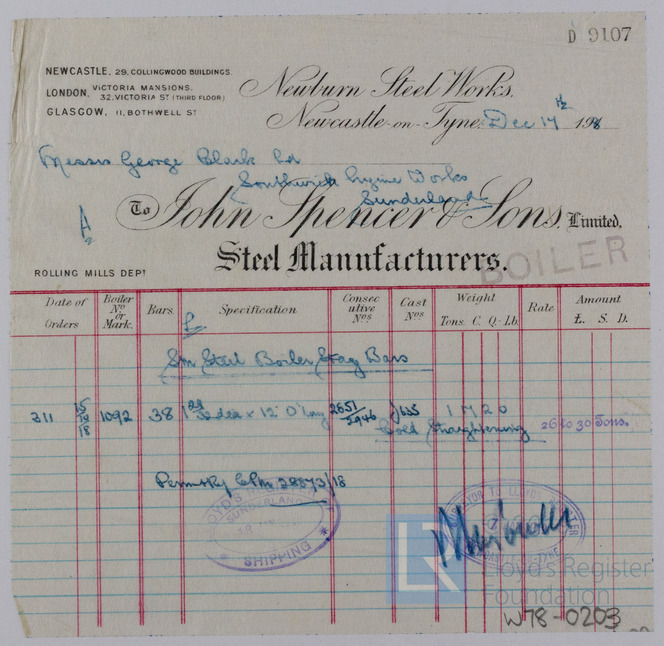 D 9107
NEWCASTLE, 29, COLLINGWOOD BUILDINGS.
LONDON, VICTORIA MANSIONS, 32, VICTORIA ST (THIRD FLOOR)
GLASGOW, 11, BOTHWELL ST
Newburn Steel Works.
Newcastle-on-Tyne, Dec 17th 1918
Messrs George Clark Ld
Southwick Engine Works
Sunderland
To John Spencer & Sons, Limited,
Steel Manufacturers.
BOILER
ROLLING MILLS DEPT
Date of Orders Boiler No or Mark. Bars. Specification Consecutive Nos Cast Nos Weight Tons. C. Q. Lb. Rate Amount £. S. D.
Sm Steel Boiler Stay Bars
311 1092 38 dia x 12' 0" long 2651/2946 1635 1 17 2 0
Cold Straightening 26 to 30 Tons.
/18
SUNDERLAND
SHIPPING
SURVEYOR TO LLOYD'S REGISTER
LR
Lloyd's Register
Foundation
W78-0203